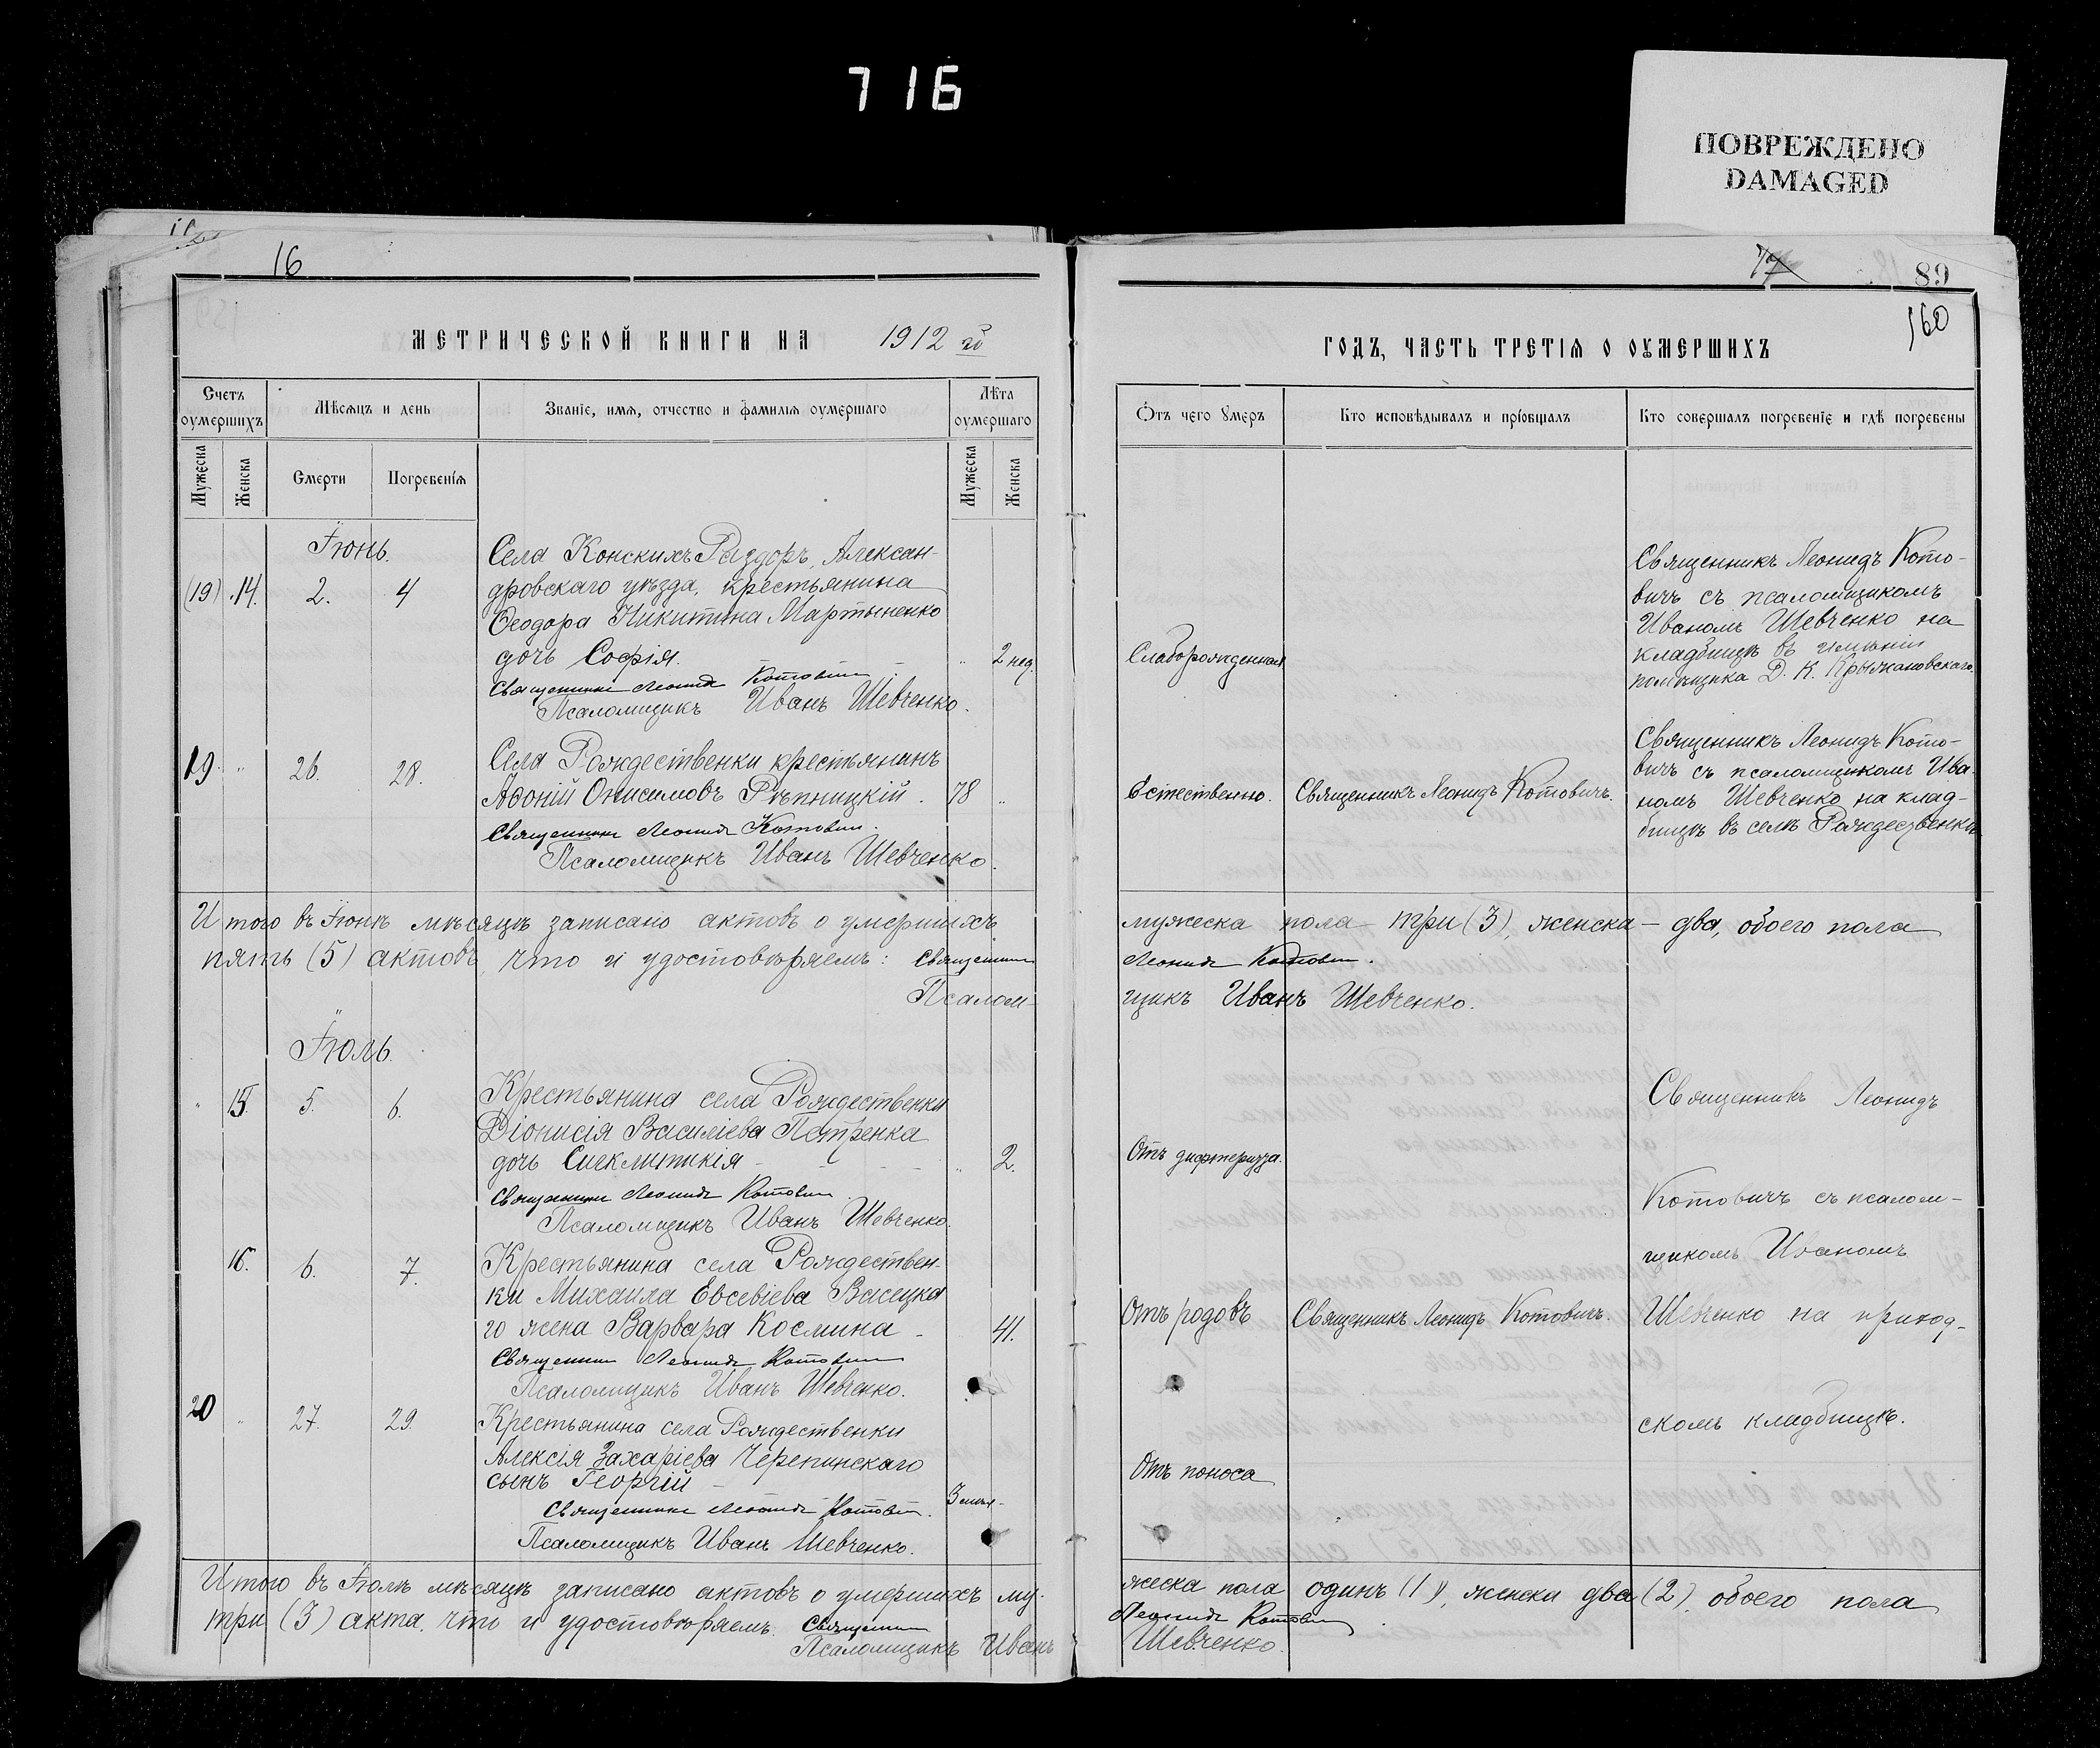 716
ПОВРЕЖДЕНО
DAMAGED
16
89
160
МЕТРИЧЕСКОЙ КНИГИ НА 1912 й
Счетъ оумершихъ
Мѣсяцъ и день
Званіе, имя, отчество и фамилія оумершаго
Лѣта оумершаго
Мужеска
Женска
Смерти
Погребенія
Мужеска
Женска
Іюнь.
(19) 14. 2. 4
Села Конскихъ Раздоръ, Алексан-
дровскаго уѣзда, крестьянина
Ѳеодора Никитина Мартыненко
дочь Софія. " 2 нед.
Священникъ Леонидъ Котовичъ
Псаломщикъ Иванъ Шевченко.
19. " 26. 28.
Села Рождественки крестьянинъ
Аѳоній Онисимовъ Рѣпницкій. 78 "
Священникъ Леонидъ Котовичъ.
Псаломщикъ Иванъ Шевченко.
Итого въ Іюнѣ мѣсяцѣ записано актовъ о умершихъ
пять (5) актовъ, что и удостовѣряемъ: Священникъ
Псалом-
Іюль.
" 15. 5. 6.
Крестьянина села Рождественки
Діонисія Василіева Петренка
дочь Сигклитикія " 2.
Священникъ Леонидъ Котовичъ.
Псаломщикъ Иванъ Шевченко.
16. 6. 7.
Крестьянина села Рождествен-
ки Михаила Евсевіева Васецка
го жена Варвара Космина 41.
Священникъ Леонидъ Котовичъ
Псаломщикъ Иванъ Шевченко.
20 " 27. 29.
Крестьянина села Рождественки
Алексія Захаріева Черепинскаго
сынъ Георгій
Священникъ Леонидъ Котовичъ.
Псаломщикъ Иванъ Шевченко.
Итого въ Іюлѣ мѣсяцѣ записано актовъ о умершихъ му-
три (3) акта, что и удостовѣряемъ. Священникъ
Псаломщикъ Иванъ
ГОДЪ, ЧАСТЬ ТРЕТІЯ О ОУМЕРШИХЪ
Отъ чего умеръ
Кто исповѣдывалъ и пріобщалъ
Кто совершалъ погребеніе и гдѣ погребены
Слаборожденная
Священникъ Леонидъ Кото-
вичъ съ псаломщикомъ
Иваномъ Шевченко на
кладбищѣ въ имѣніи
помѣщика Д. К. Крыжановскаго.
Естественно.
Священникъ Леонидъ Котовичъ.
Священникъ Леонидъ Кото-
вичъ съ псаломщикомъ Ива-
номъ Шевченко на клад-
бищѣ въ селѣ Рождественкѣ
мужеска пола три (3), женска - два, обоего пола
Леонидъ Котовичъ.
щикъ Иванъ Шевченко.
Отъ дифтерита.
Отъ родовъ
Священникъ Леонидъ Котовичъ.
Отъ поноса
Священникъ Леонидъ
Котовичъ съ псалом-
щикомъ Иваномъ
Шевченко на приход-
скомъ кладбищѣ.
жеска пола одинъ (1), женска два (2), обоего пола
Леонидъ Котовичъ
Шевченко.